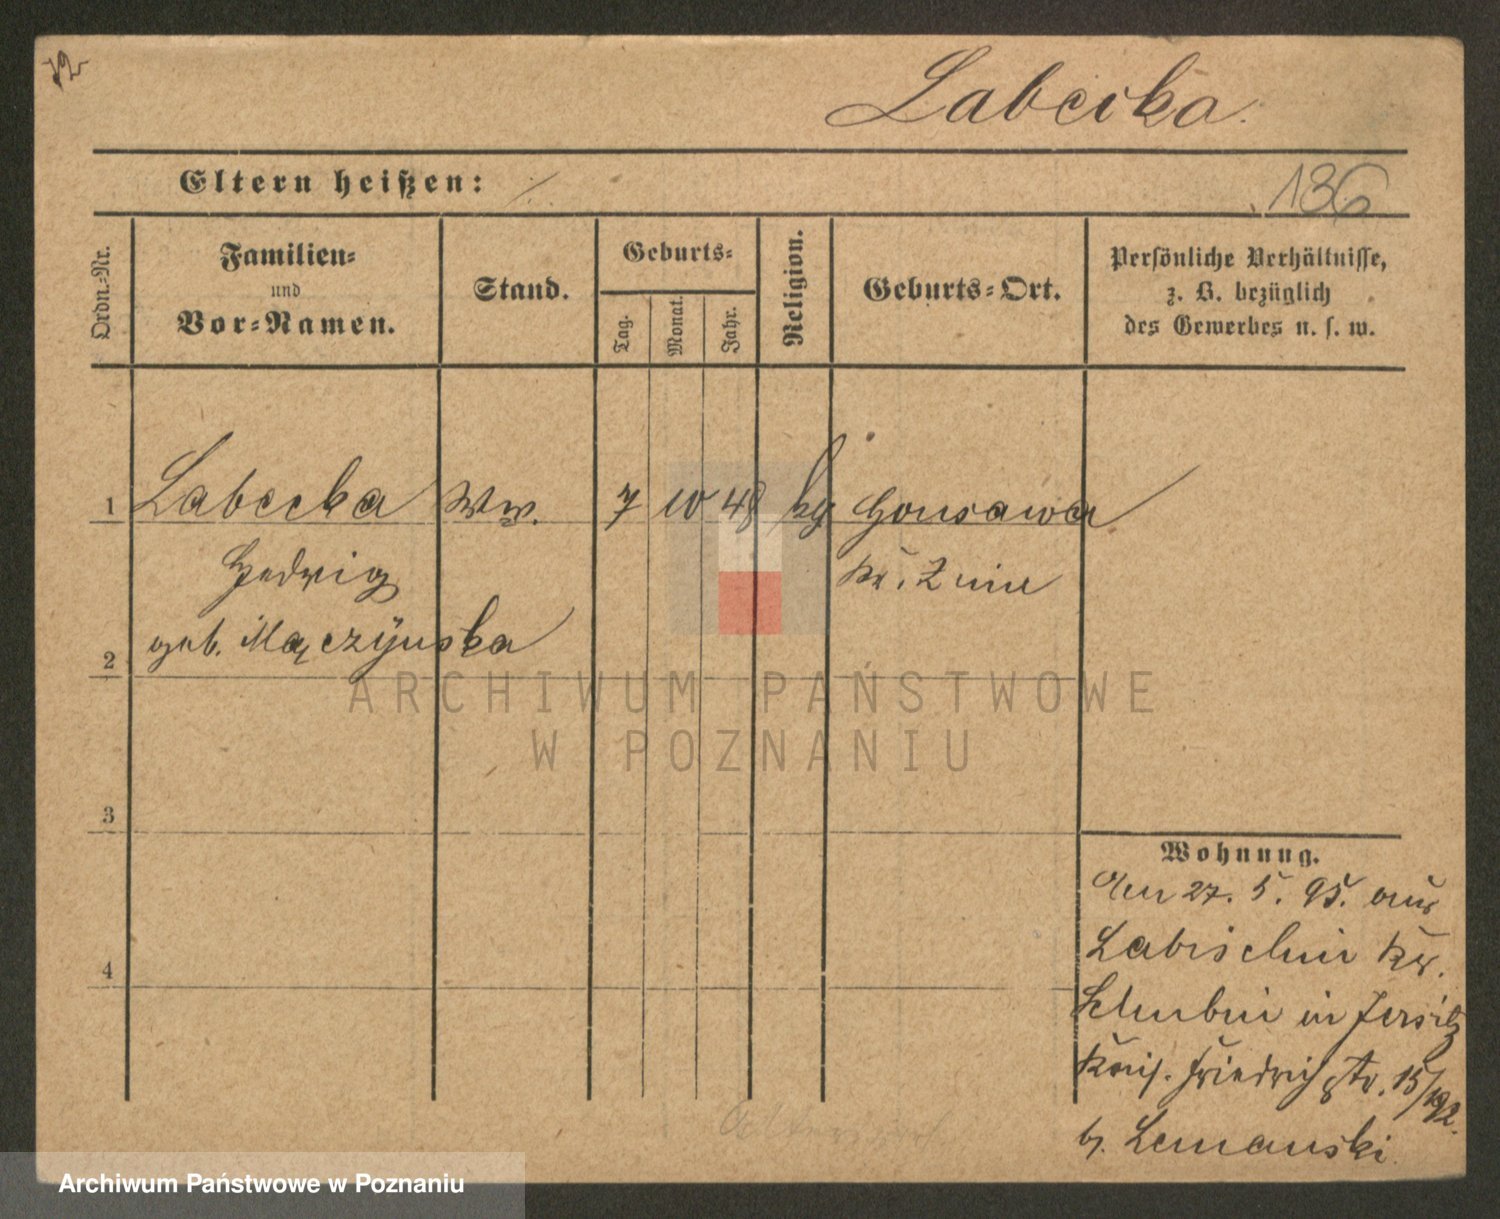 Labecka.
Eltern heißen: ·/.
136
Ordn.-Nr.
Familien-
und
Vor-Namen.
Stand.
Geburts-
Tag.
Monat.
Jahr.
Religion.
Geburts-Ort.
Persönliche Verhältnisse,
z. B. bezüglich
des Gewerbes u. s. w.
1 Labecka Ww. 7 10 48 Gonsawa
Hedwig Kr. Znin
2 geb. Mączÿnska
3
4
Wohnung.
27. 5. 95. aus
Labischin Kr.
Schubin in Jersitz
Kais. Friedrichstr. 15/192.
b. Lemanski
ARCHIWUM PAŃSTWOWE
W POZNANIU
Archiwum Państwowe w Poznaniu